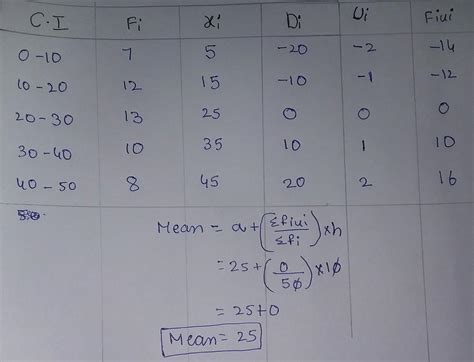 C.I Fi xi Di Ui Fiui
0-10 7 5 -20 -2 -14
10-20 12 15 -10 -1 -12
20-30 13 25 0 0 0
30-40 10 35 10 1 10
40-50 8 45 20 2 16
Mean = a+(Σfiui/Σfi)×h
= 25+(0/50)×10
= 25+0
Mean = 25